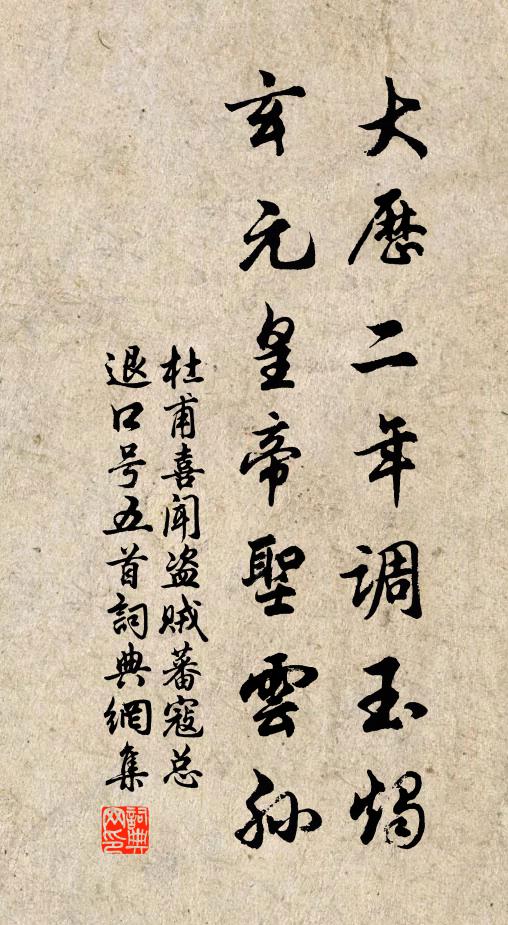 大历二年调玉烛
玄元皇帝聖雲孙
杜甫喜闻盗贼蕃寇总
退口号五首詞典網集
詞典网印